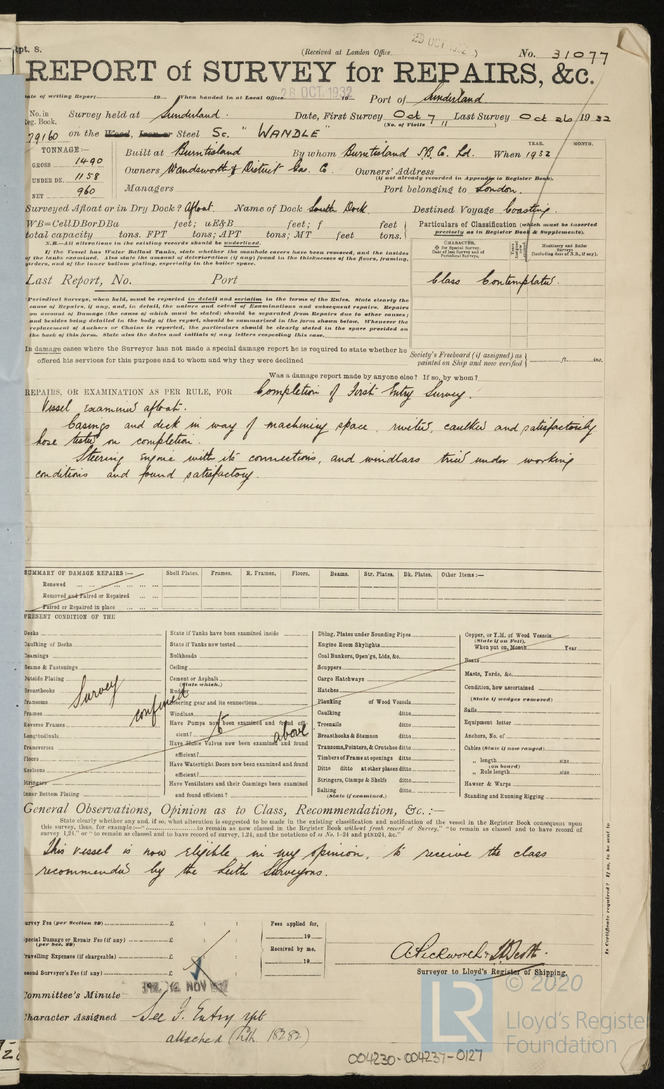 Rpt. 8.
(Received at London Office
No. 31077
REPORT of SURVEY for REPAIRS, &c.
Date of writing Report 19 When handed in at Local Office 28 OCT. 1932 19 Port of Sunderland
No. in Reg. Book. Survey held at Sunderland. Date, First Survey Oct 7 Last Survey Oct 26 1932
(No. of Visits 11 )
79160 on the Wood, Iron or Steel Sc. "WANDLE"
TONNAGE:—
GROSS 1490
UNDER DK. 1158
NET 960
Built at Burntisland By whom Burntisland S.B. Co. Ld. When 1932
YEAR. MONTH.
Owners Wandsworth & District Gas. Co Owners' Address
(if not already recorded in Appendix to Register Book).
Managers Port belonging to London.
Surveyed Afloat or in Dry Dock? Afloat. Name of Dock South Dock Destined Voyage Coasting.
WB=CellDBorDBa feet; uE&B feet; f feet
total capacity tons. FPT tons; APT tons; MT feet tons.
Particulars of Classification (which must be inserted
precisely as in Register Book & Supplements).
N.B.—All alterations in the existing records should be underlined.
If the Vessel has Water Ballast Tanks, state whether the manhole covers have been removed, and the insides
of the tanks examined. Also state the amount of deterioration (if any) found in the thicknesses of the floors, framing,
girders, and of the inner bottom plating, especially in the boiler space.
CHARACTER.
Machinery and Boiler
Surveys
(including date of N.B., if any).
Class Contemplated.
Last Report, No. Port
Periodical Surveys, when held, must be reported in detail and seriatim in the terms of the Rules. State clearly the
cause of Repairs, if any, and, in detail, the nature and extent of Examinations and subsequent repairs. Repairs
on account of Damage (the cause of which must be stated) should be separated from Repairs due to other causes;
and besides being detailed in the body of the report, should be summarised in the form shewn below. Whenever the
replacement of Anchors or Chains is reported, the particulars should be clearly stated in the space provided on
the back of this form. State also the dates and initials of any letters respecting this case.
In damage cases where the Surveyor has not made a special damage report he is required to state whether he
offered his services for this purpose and to whom and why they were declined
Society's Freeboard (if assigned) as
painted on Ship and now verified ft. ins.
Was a damage report made by anyone else? If so, by whom?
REPAIRS, OR EXAMINATION AS PER RULE, FOR Completion of First Entry Survey.
Vessel examined afloat.
Casings and deck in way of machinery space riveted, caulked and satisfactorily
hose tested on completion.
Steering engine with its connections, and windlass tried under working
conditions and found satisfactory.
SUMMARY OF DAMAGE REPAIRS:— Shell Plates. Frames. R. Frames. Floors. Beams. Str. Plates. Bk. Plates. Other Items:—
Renewed
Removed and Faired or Repaired
Faired or Repaired in place
PRESENT CONDITION OF THE
Decks
Caulking of Decks
Coamings
Beams & Fastenings
Outside Plating
Breasthooks
Transoms
Frames
Reverse Frames
Longitudinals
Transverses
Floors
Keelsons
Stringers
Inner Bottom Plating
State if Tanks have been examined inside
State if Tanks now tested
Bulkheads
Ceiling
Cement or Asphalt
(State which.)
Rudder
Steering gear and its connections
Windlass
Have Pumps now been examined and found efficient?
Have Sluice Valves now been examined and found
efficient?
Have Watertight Doors now been examined and found
efficient?
Have Ventilators and their Coamings been examined
and found efficient?
Dblng. Plates under Sounding Pipes
Engine Room Skylights
Coal Bunkers, Open'gs, Lids, &c.
Scuppers
Cargo Hatchways
Hatches
Planking of Wood Vessels
Caulking ditto
Treenails ditto
Breasthooks & Stemson ditto
Transoms, Pointers, & Crutches ditto
Timbers of Frame at openings ditto
Ditto ditto at other places ditto
Stringers, Clamps & Shelfs ditto
Salting ditto
(State if examined.)
Copper, or Y.M. of Wood Vessels
(State if on Felt).
When put on, Month Year
Boats
Masts, Yards, &c.
Condition, how ascertained
(State if wedges removed)
Sails
Equipment letter
Anchors, No. of
Cables (State if now ranged)
" length size
(on board)
" Rule length size
Hawser & Warps
Standing and Running Rigging
Survey confined to above
General Observations, Opinion as to Class, Recommendation, &c.:—
State clearly whether any and, if so, what alteration is suggested to be made in the existing classification and notification of the vessel in the Register Book consequent upon
this survey, thus, for example:—" to remain as now classed in the Register Book without fresh record of Survey," "to remain as classed and to have record of
survey 1,24," or "to remain as classed and to have record of survey, 1,24, and the notations of
This vessel is now eligible, in my opinion, to receive the class
recommended by the Leith Surveyors.
Survey Fee (per Section 29) £
Special Damage or Repair Fee (if any) £
(per Sec. 29)
Travelling Expenses (if chargeable) £
Second Surveyor's Fee (if any) £
Fees applied for,
19
Received by me,
19
A. Pickworth
Surveyor to Lloyd's Register of Shipping.
Committee's Minute
Character Assigned See F. Entry rpt
attached (Lth. 18282)
© 2020
LR
Lloyd's Register
Foundation
004230-004237-0127